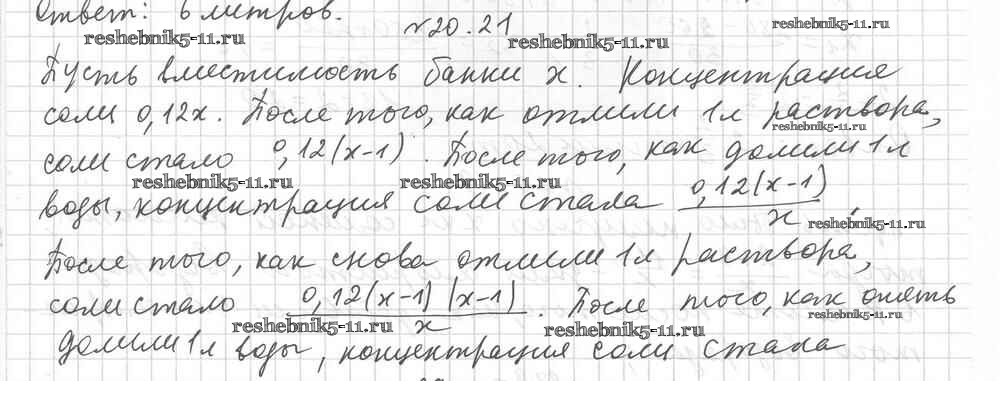 Ответ: 6 метров.
№20.21
reshebnik5-11.ru
reshebnik5-11.ru
reshebnik5-11.ru
Пусть вместимость банки x. Концентрация
соли 0,12x. После того, как отлили 1л раствора,
reshebnik5-11.ru
соли стало 0,12(x-1). После того, как долили 1л
reshebnik5-11.ru
reshebnik5-11.ru
воды, концентрация соли стала 0,12(x-1)/x.
reshebnik5-11.ru
После того, как снова отлили 1л раствора,
соли стало 0,12(x-1)(x-1)/x. После того, как опять
reshebnik5-11.ru
reshebnik5-11.ru
reshebnik5-11.ru
долили 1л воды, концентрация соли стала